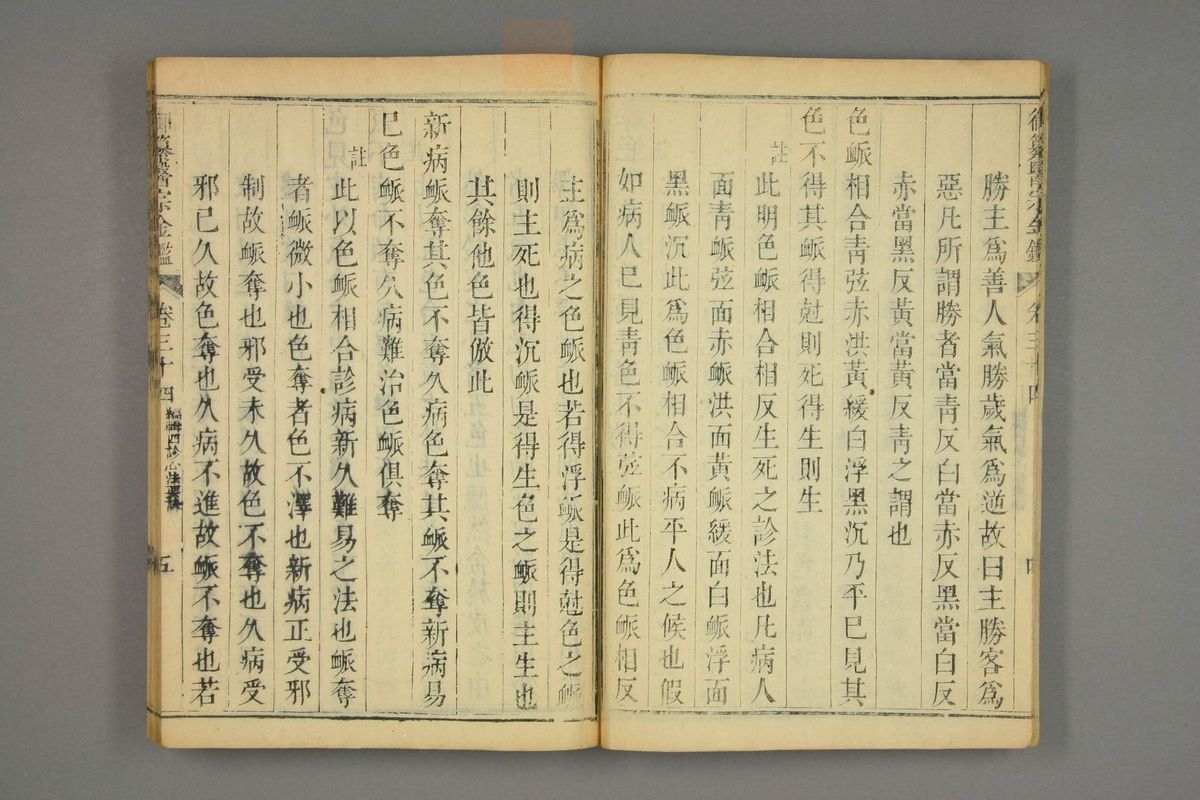 御纂醫宗金鑑 卷三十四 四
勝主爲善人氣勝歲氣爲逆故曰主勝客爲
惡凡所謂勝者當靑反白當赤反黑當白反
赤當黑反黃當黃反靑之謂也
色䘑相合靑弦赤洪黃緩白浮黑沉乃平已見其
色不得其䘑得尅則死得生則生
註
此明色䘑相合相反生死之診法也凡病人
面靑䘑弦面赤䘑洪面黃䘑緩面白䘑浮面
黑䘑沉此爲色䘑相合不病平人之候也假
如病人已見靑色不得弦䘑此爲色䘑相反
主爲病之色䘑也若得浮䘑是得尅色之䘑
則主死也得沉䘑是得生色之䘑則主生也
其餘他色皆倣此
新病䘑奪其色不奪久病色奪其䘑不奪新病易
已色䘑不奪久病難治色䘑俱奪
註
此以色䘑相合診病新久難易之法也䘑奪
者䘑微小也色奪者色不澤也新病正受邪
制故䘑奪也邪受未久故色不奪也久病受
邪已久故色奪也久病不進故䘑不奪也若
御纂醫宗金鑑 卷三十四 編輯四診心法要訣 五